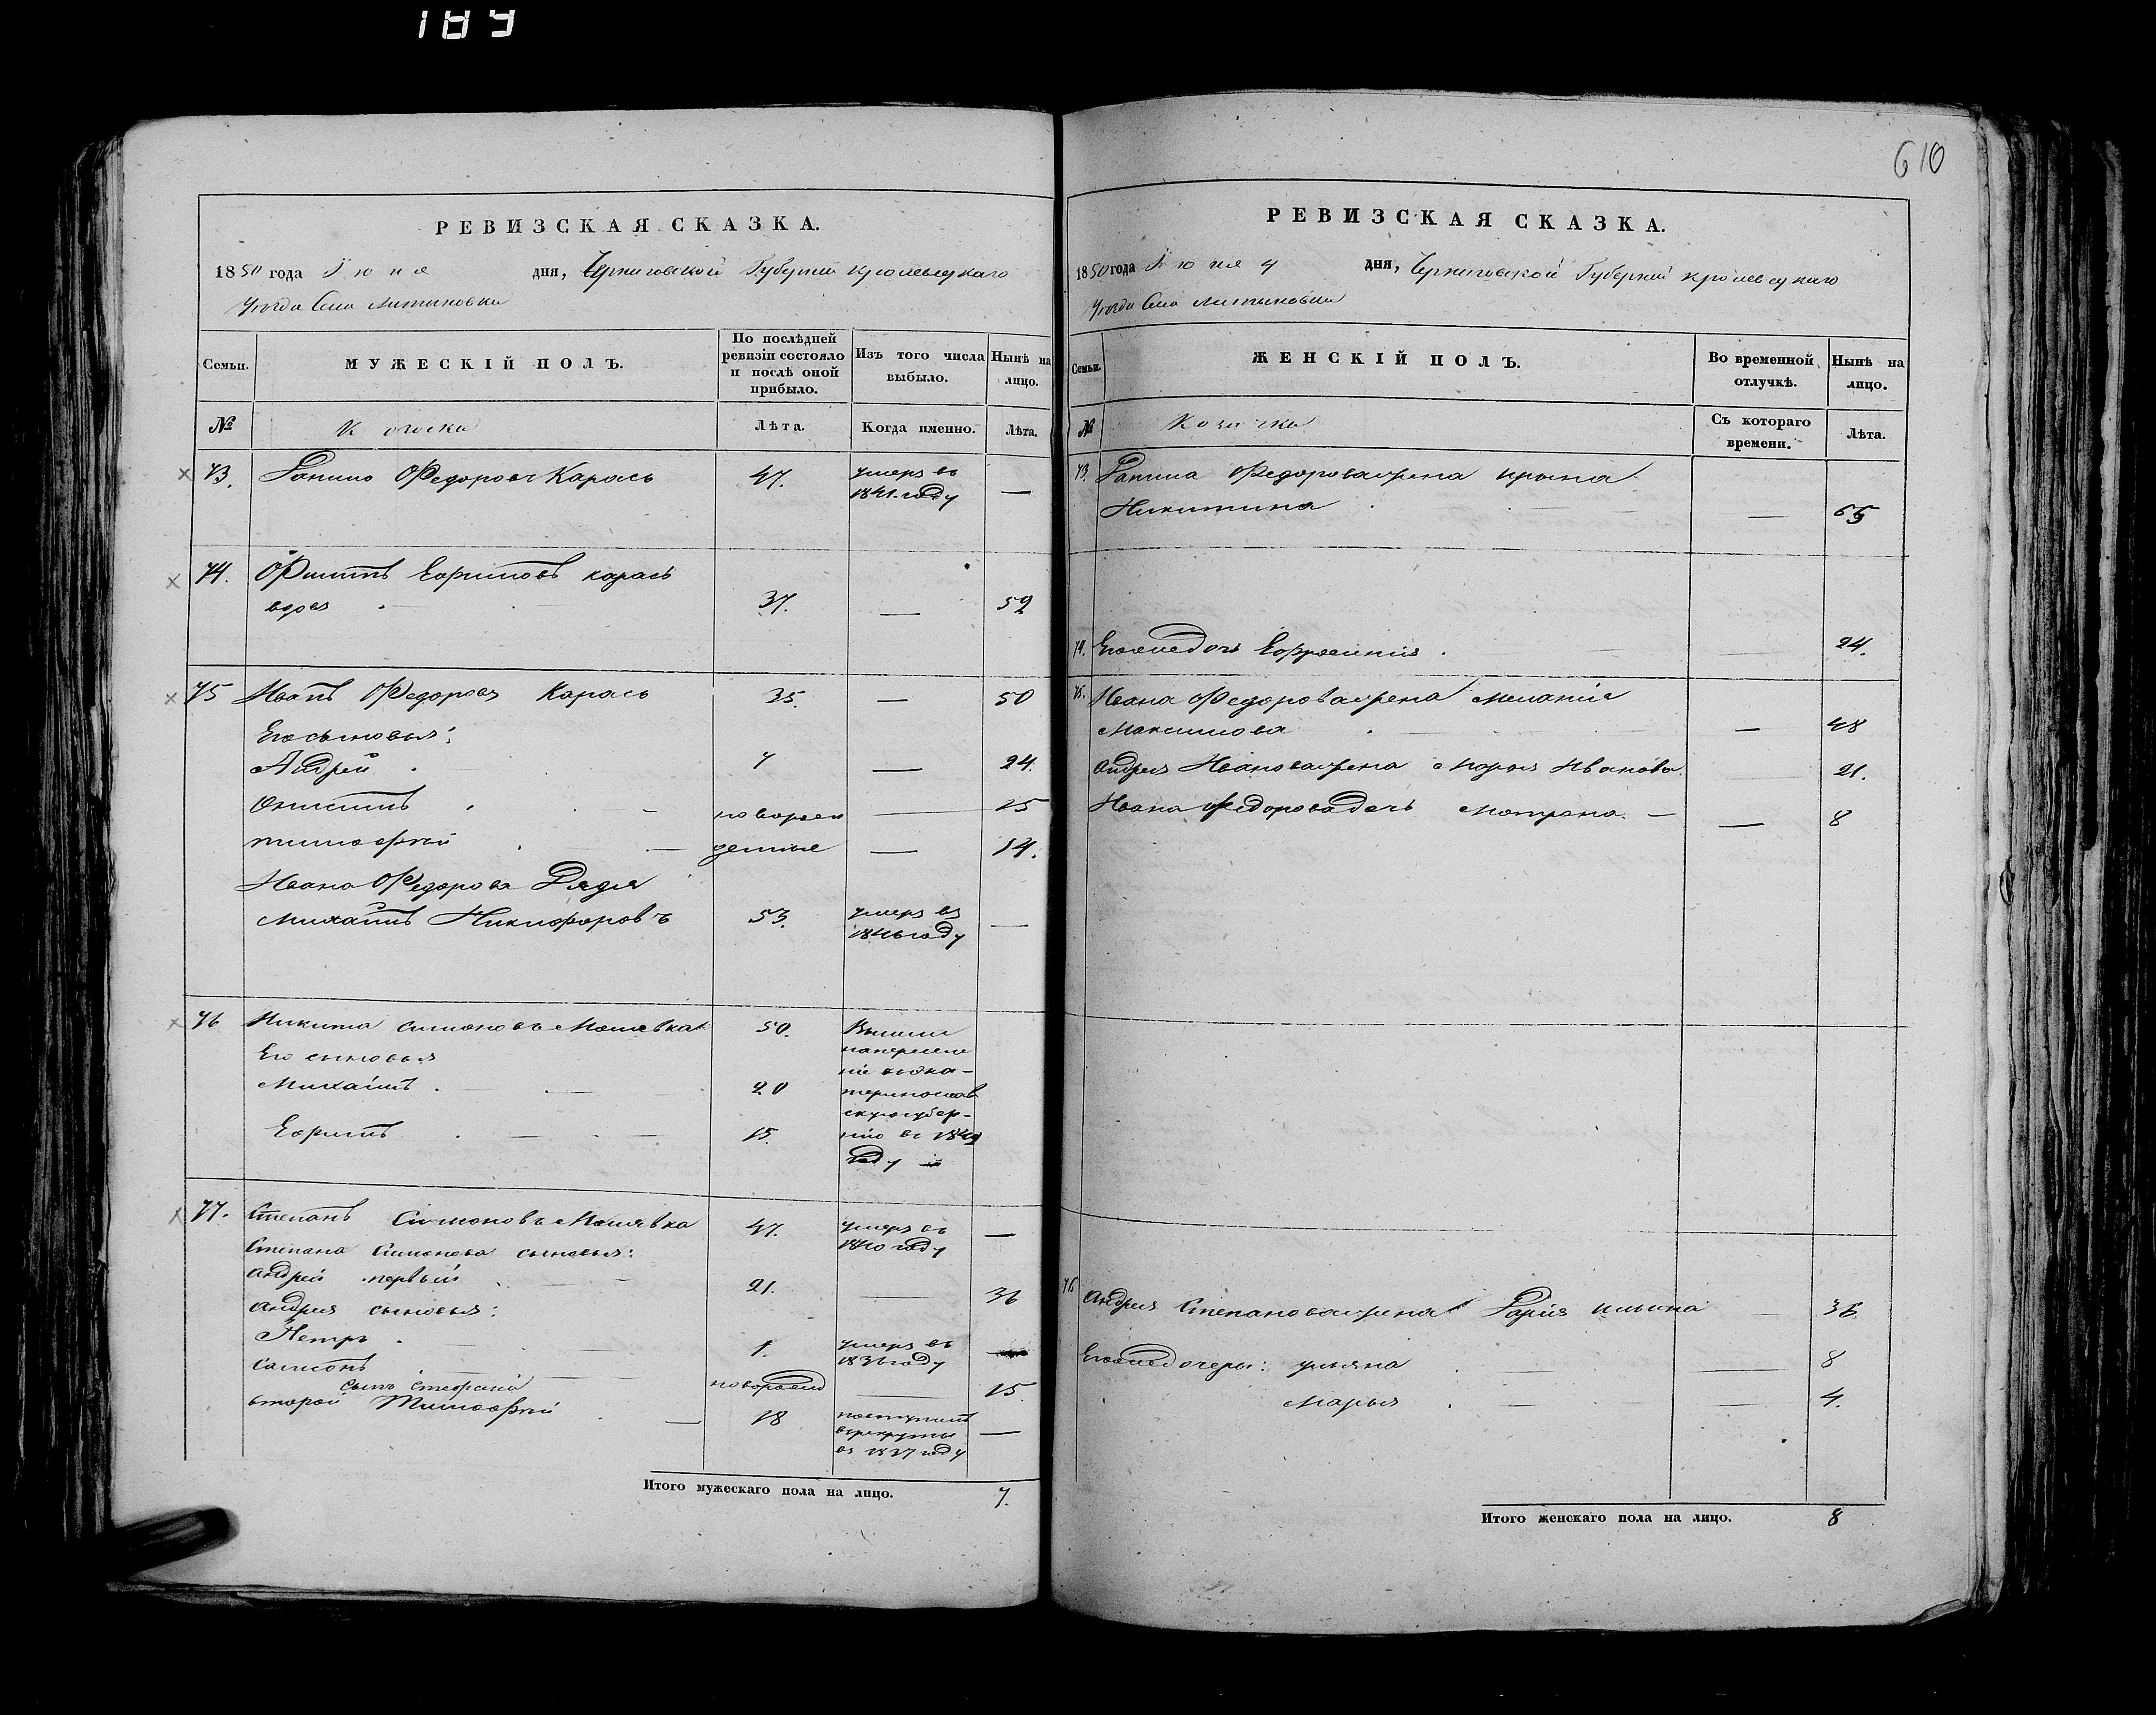 189
РЕВИЗСКАЯ СКАЗКА.
1850 года Іюня дня, Черниговской Губерніи Кролевецкаго
Уезда Села Литвиновки
Семьи.
МУЖЕСКІЙ ПОЛЪ.
По послѣдней ревизіи состояло и послѣ оной прибыло.
Изъ того числа выбыло.
Нынѣ на лицо.
№
Козаки
Лѣта.
Когда именно.
Лѣта.
73. Данило Федоровъ Карась 47. умеръ въ 1841 году —
74. Филипъ Ефимовъ карась
вдов 37. — 52
75 Иванъ Федоровъ Карась 35. — 50
Его сыновья:
Андрей 7 — 24.
Онисимъ новорож — 15
тимофей денные — 14.
Ивана Федорова Дядя
Михаилъ Никифоровъ 53. умеръ въ 1846 году —
76 Никита Симоновъ 50.
Его сыновья
Михаилъ 20
Ефимъ 15.
году
77. Степанъ Симоновъ 47. умеръ въ 1840 году —
Степана Симонова сыновья:
Андрей первый 21. — 36
Андрея сыновья:
Петръ 1. умеръ въ 1836 году
Самсонъ новорожд — 15
сынъ
второй Тимофей 18 поступилъ в рекруты въ 1837 году —
Итого мужескаго пола на лицо. 7.
610
РЕВИЗСКАЯ СКАЗКА.
1850 года Іюня 4 дня, Черниговской Губерніи Кролевецкаго
Уезда Села Литвиновки
Семьи.
ЖЕНСКІЙ ПОЛЪ.
Во временной отлучкѣ.
Нынѣ на лицо.
№
Козачки
Съ котораго времени.
Лѣта.
73. Данила Федорова жена Ирина
Никитина — 65
74. дочь Ефросинія — 24.
75. Ивана Федорова жена Меланія
Максимова — 48
Андрея Иванова жена Марья Иванова 21.
Ивана Федорова дочь Мотрона — 8
76 Андрея Степанова жена Дарія Ильина 36
дочери: Ульяна — 8
Марья — 4.
Итого женскаго пола на лицо. 8